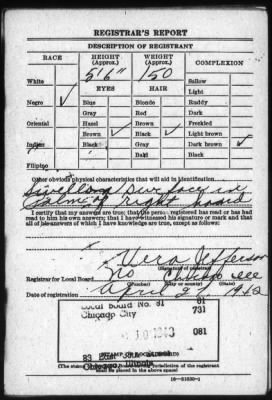 REGISTRAR'S REPORT
DESCRIPTION OF REGISTRANT
RACE HEIGHT (Approx.) WEIGHT (Approx.) COMPLEXION
5'6" 150
White EYES HAIR Sallow
Light
Negro ✓ Blue Blonde Ruddy
Gray Red Dark
Oriental Hazel Brown Freckled
Brown ✓ Black ✓ Light brown
Indian Black Gray Dark brown ✓
Bald Black
Filipino
Other obvious physical characteristics that will aid in identification
in
Palm of right hand
I certify that my answers are true; that the person registered has read or has had
read to him his own answers; that I have witnessed his signature or mark and that
all of his answers of which I have knowledge are true, except as follows:
Vera Jefferson
(Signature of registrar)
Registrar for Local Board No Chicago Ill
(Number) (City or county) (State)
Date of registration April 27 1942
Local Board No. 81 81
Chicago City 731
081
83 East
Chicago, Illinois
(STAMP OF LOCAL BOARD)
(The stamp of the Local Board having jurisdiction of the registrant
shall be placed in the above space)
16—21630-1